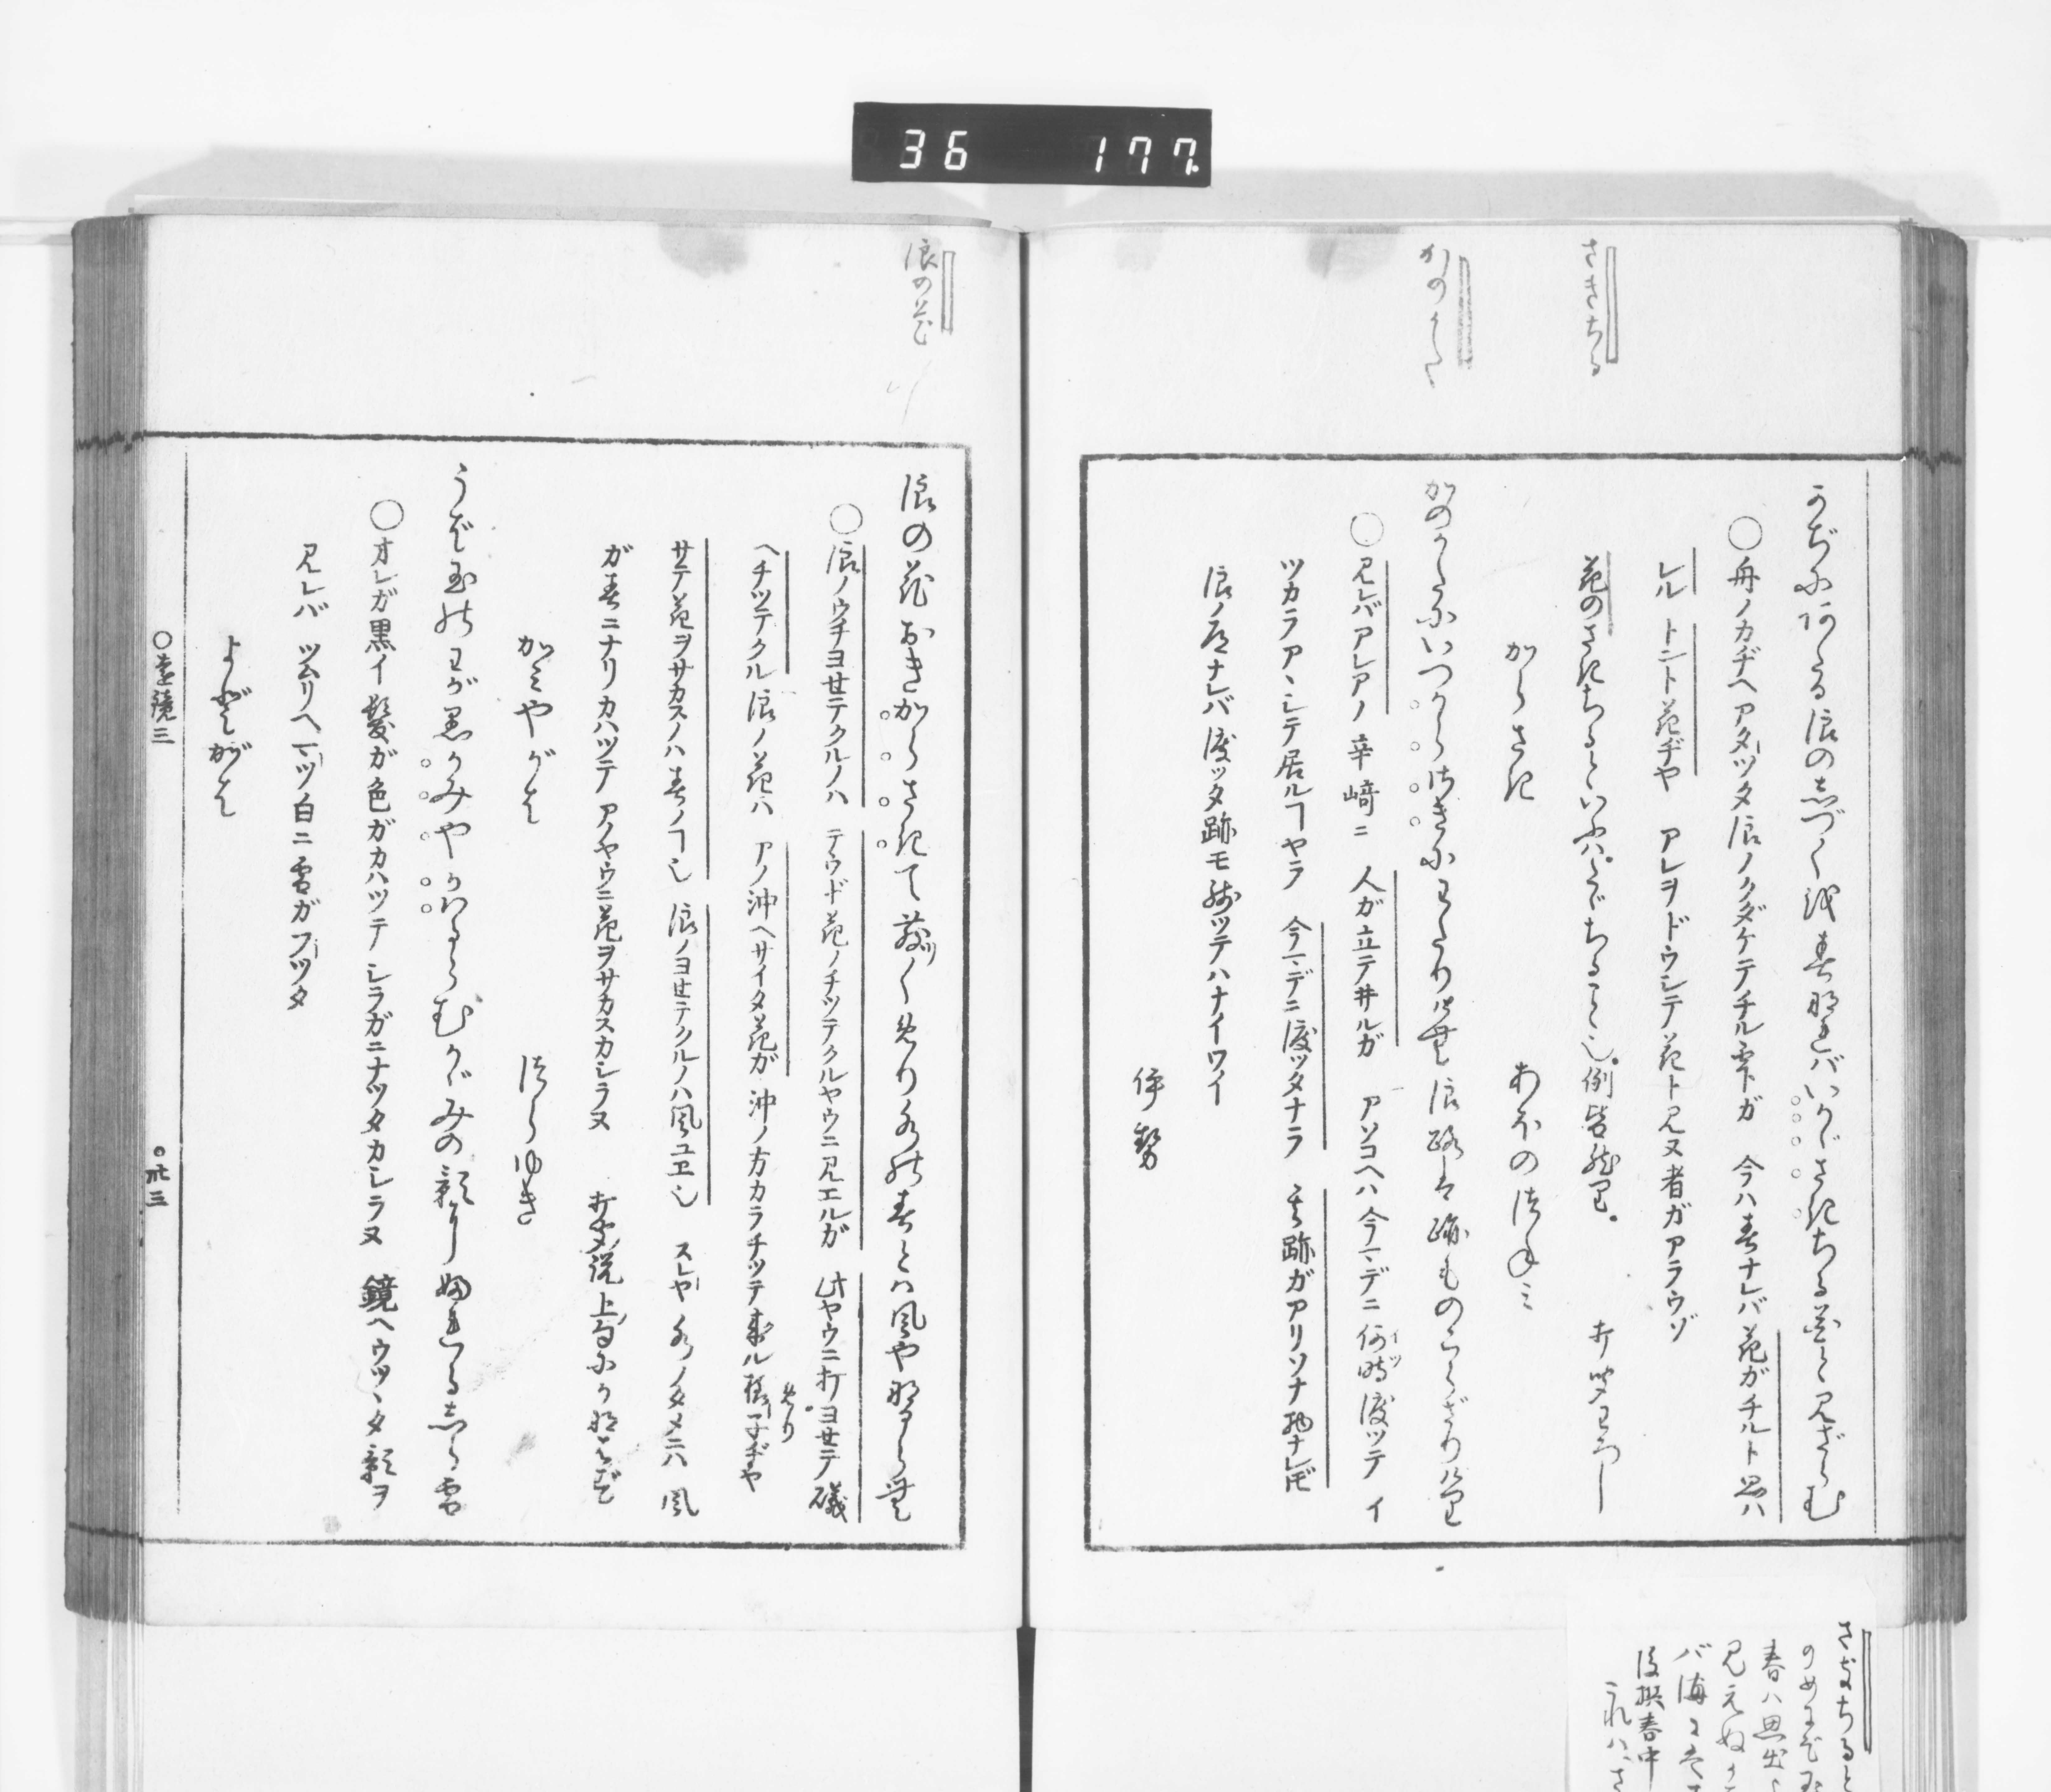 36 177
さきちる
かのかた
かぢにあたる浪のしづくを春なればいかゞさきちる花と見ざらむ
○舟ノカヂヘアタッタ浪ノクダケテチル雫ガ 今ハ春ナレバ 花ガチルト思ハ
レル トント花ヂヤ アレヲドウシテ花ト見ヌ者ガアラウゾ
花のさきちるといふハたゞちることし例皆然り
からさき
あほのつねみ
打聞わろし
かのかたにいつからさきにわたりけむ浪路は跡ものこらざりけり
○見レバアレアノ 辛崎ニ 人ガ立テ井ルガ アソコヘハ今マデニ何時渡ッテ イ
イツ
ツカラアヽシテ居ルヿヤラ 今マデニ渡ッタナラ 其跡ガアリソナ物ナレド
浪ノ尾ナレバ渡ッタ跡モ残ッテハナイワイ
伊勢
浪の花
浪の花おきからさきて散くめり水の春とは風やなるらむ
○浪ノウチヨセテクルノハ テウド花ノチッテクルヤウニ見エルガ 此ヤウニ打ヨセテ磯
ヘチッテクル浪ノ花ハ アノ沖ヘサイタ花ガ 沖ノ方カラチッテ来ル様子ヂヤ
めり
サテ花ヲサカスノハ春ノヿシ 浪ノヨセテクルノハ風ユヱシ スレヤ 水ノタメニハ 風
ガ春ニナリカハッテ アノヤウニ花ヲサカスカシラヌ
かみやがは
つらゆき
うば玉のわが黒かみやかはるらむかゞみの影にふれるしら雪
○オレガ黒イ髪ガ色ガカハッテ シラガニナッタカシラヌ 鏡ヘウツヽタ影ヲ
見レバ ツムリヘ一ツ白ニ雪ガフッタ
よどがは
○遠鏡三
さきちると
春ハ思出
見えぬ
バ海に
後撰春中
これハさ